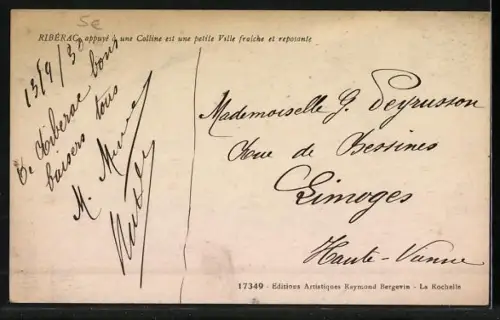 5e
RIBÉRAC, appuyé à une Colline est une petite Ville fraîche et reposante
13/9/3
De Riberac bons
baisers tous
M.
Mademoiselle G. Peyrusson
Rue de Bessines
Limoges
Haute-Vienne
17349 - Éditions Artistiques Raymond Bergevin - La Rochelle